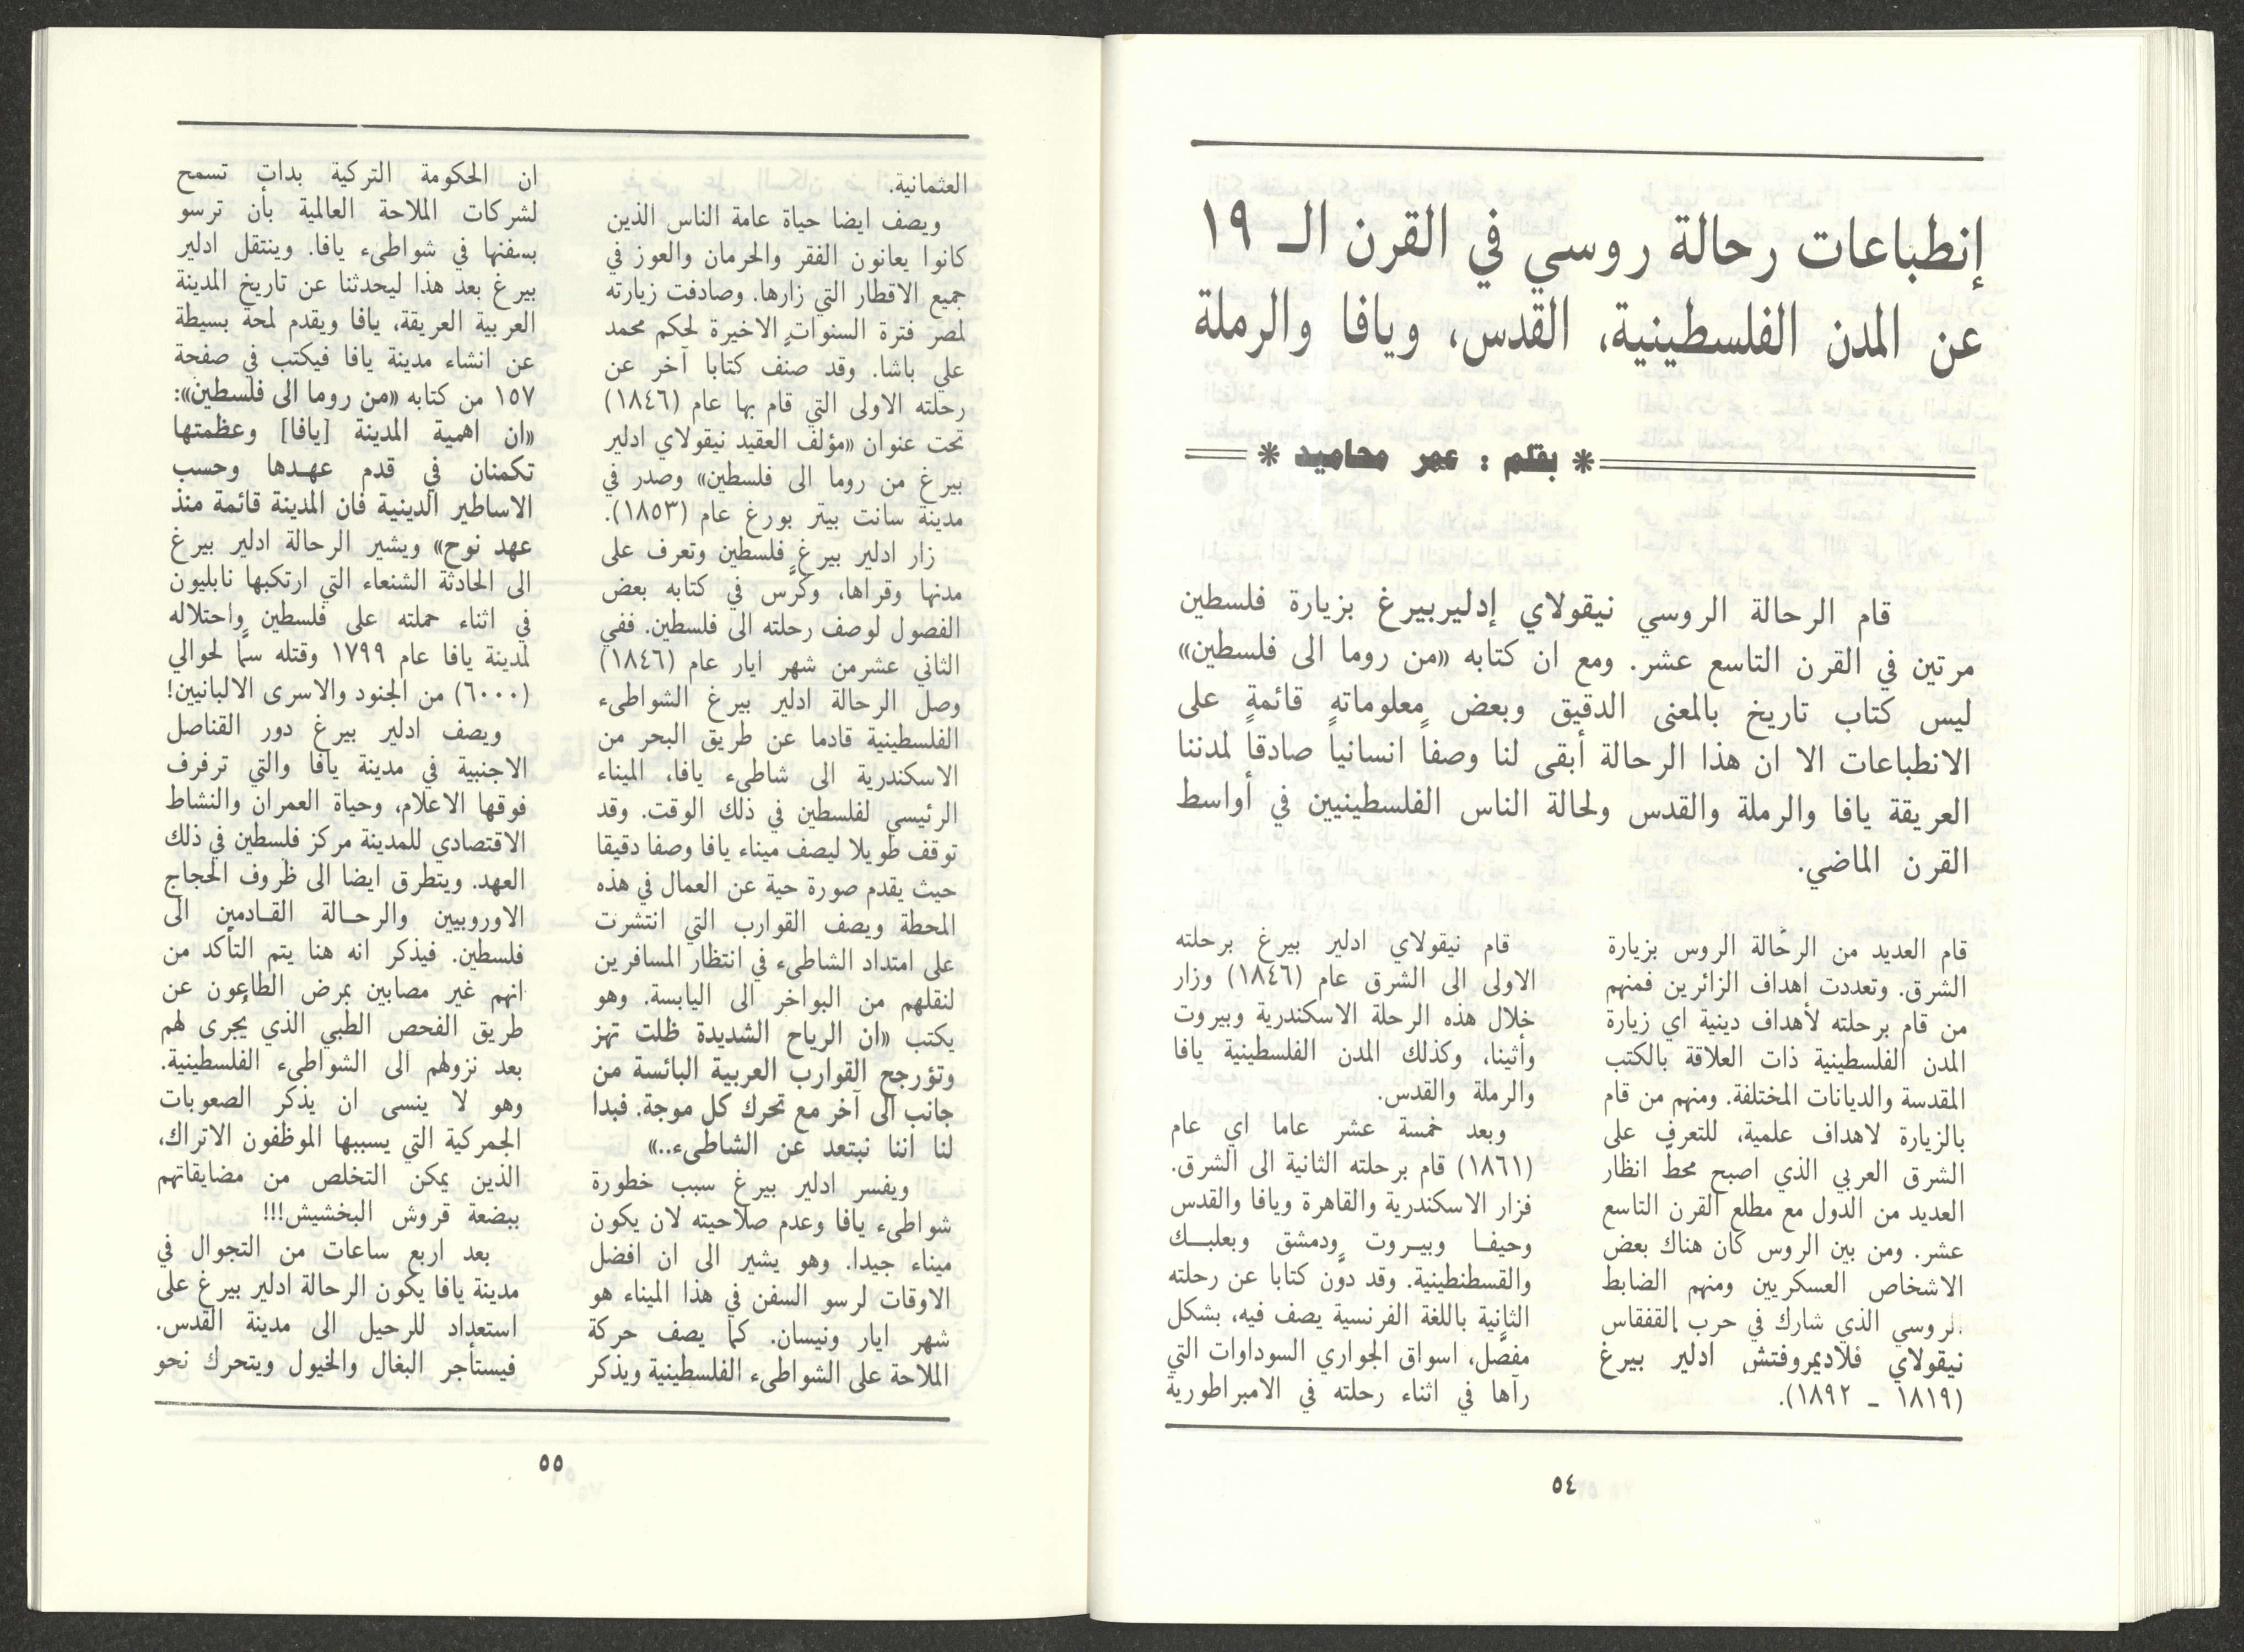 إنطباعات رحالة روسي في القرن الـ ١٩
عن المدن الفلسطينية، القدس، ويافا والرملة
* بقلم : عمر محاميد *
قام الرحالة الروسي نيقولاي إدليربيرغ بزيارة فلسطين
مرتين في القرن التاسع عشر. ومع ان كتابه «من روما الى فلسطين»
ليس كتاب تاريخ بالمعنى الدقيق وبعض معلوماته قائمة على
الانطباعات الا ان هذا الرحالة أبقى لنا وصفاً انسانياً صادقاً لمدننا
العريقة يافا والرملة والقدس ولحالة الناس الفلسطينيين في أواسط
القرن الماضي.
قام العديد من الرحّالة الروس بزيارة
الشرق. وتعددت اهداف الزائرين فمنهم
من قام برحلته لأهداف دينية اي زيارة
المدن الفلسطينية ذات العلاقة بالكتب
المقدسة والديانات المختلفة. ومنهم من قام
بالزيارة لاهداف علمية، للتعرف على
الشرق العربي الذي اصبح محطّ انظار
العديد من الدول مع مطلع القرن التاسع
عشر. ومن بين الروس كان هناك بعض
الاشخاص العسكريين ومنهم الضابط
الروسي الذي شارك في حرب القفقاس
نيقولاي فلاديمروفتش ادلير بيرغ
(١٨١٩ - ١٨٩٢).
قام نيقولاي ادلير بيرغ برحلته
الاولى الى الشرق عام (١٨٤٦) وزار
خلال هذه الرحلة الاسكندرية وبيروت
وأثينا، وكذلك المدن الفلسطينية يافا
والرملة والقدس.
وبعد خمسة عشر عاما اي عام
(١٨٦١) قام برحلته الثانية الى الشرق.
فزار الاسكندرية والقاهرة ويافا والقدس
وحيفا وبيروت ودمشق وبعلبك
والقسطنطينية. وقد دوّن كتابا عن رحلته
الثانية باللغة الفرنسية يصف فيه، بشكل
مفصّل، اسواق الجواري السوداوات التي
رآها في اثناء رحلته في الامبراطورية
٥٤
العثمانية.
ويصف ايضا حياة عامة الناس الذين
كانوا يعانون الفقر والحرمان والعوز في
جميع الاقطار التي زارها. وصادفت زيارته
لمصر فترة السنوات الاخيرة لحكم محمد
علي باشا. وقد صنف كتابا آخر عن
رحلته الاولى التي قام بها عام (١٨٤٦)
تحت عنوان «مؤلف العقيد نيقولاي ادلير
بيرغ من روما الى فلسطين» وصدر في
مدينة سانت بيتر بورغ عام (١٨٥٣).
زار ادلير بيرغ فلسطين وتعرف على
مدنها وقراها، وكرّس في كتابه بعض
الفصول لوصف رحلته الى فلسطين. ففي
الثاني عشرمن شهر ايار عام (١٨٤٦)
وصل الرحالة ادلير بيرغ الشواطىء
الفلسطينية قادما عن طريق البحر من
الاسكندرية الى شاطىء يافا، الميناء
الرئيسي لفلسطين في ذلك الوقت. وقد
توقف طويلا ليصف ميناء يافا وصفا دقيقا
حيث يقدم صورة حية عن العمال في هذه
المحطة ويصف القوارب التي انتشرت
على امتداد الشاطىء في انتظار المسافرين
لنقلهم من البواخر الى اليابسة. وهو
يكتب «ان الرياح الشديدة ظلت تهز
وتؤرجح القوارب العربية البائسة من
جانب الى آخر مع تحرك كل موجة. فبدا
لنا اننا نبتعد عن الشاطىء..»
ويفسر ادلير بيرغ سبب خطورة
شواطىء يافا وعدم صلاحيته لان يكون
ميناء جيدا. وهو يشير الى ان افضل
الاوقات لرسو السفن في هذا الميناء هو
شهر ايار ونيسان. كما يصف حركة
الملاحة على الشواطىء الفلسطينية ويذكر
ان الحكومة التركية بدات تسمح
لشركات الملاحة العالمية بأن ترسو
بسفنها في شواطىء يافا. وينتقل ادلير
بيرغ بعد هذا ليحدثنا عن تاريخ المدينة
العربية العريقة، يافا ويقدم لمحة بسيطة
عن انشاء مدينة يافا فيكتب في صفحة
١٥٧ من كتابه «من روما الى فلسطين»:
«ان اهمية المدينة [يافا] وعظمتها
تكمنان في قدم عهدها وحسب
الاساطير الدينية فان المدينة قائمة منذ
عهد نوح» ويشير الرحالة ادلير بيرغ
الى الحادثة الشنعاء التي ارتكبها نابليون
في اثناء حملته على فلسطين واحتلاله
لمدينة يافا عام ١٧٩٩ وقتله سمًّا لحوالي
(٦٠٠٠) من الجنود والاسرى الالبانيين!
ويصف ادلير بيرغ دور القناصل
الاجنبية في مدينة يافا والتي ترفرف
فوقها الاعلام، وحياة العمران والنشاط
الاقتصادي للمدينة مركز فلسطين في ذلك
العهد. ويتطرق ايضا الى ظروف الحجاج
الاوروبيين والرحالة القادمين الى
فلسطين. فيذكر انه هنا يتم التأكد من
انهم غير مصابين بمرض الطاعون عن
طريق الفحص الطبي الذي يُجرى لهم
بعد نزولهم الى الشواطىء الفلسطينية.
وهو لا ينسى ان يذكر الصعوبات
الجمركية التي يسببها الموظفون الاتراك،
الذين يمكن التخلص من مضايقاتهم
ببضعة قروش البخشيش!!!
بعد اربع ساعات من التجوال في
مدينة يافا يكون الرحالة ادلير بيرغ على
استعداد للرحيل الى مدينة القدس.
فيستأجر البغال والخيول ويتحرك نحو
٥٥